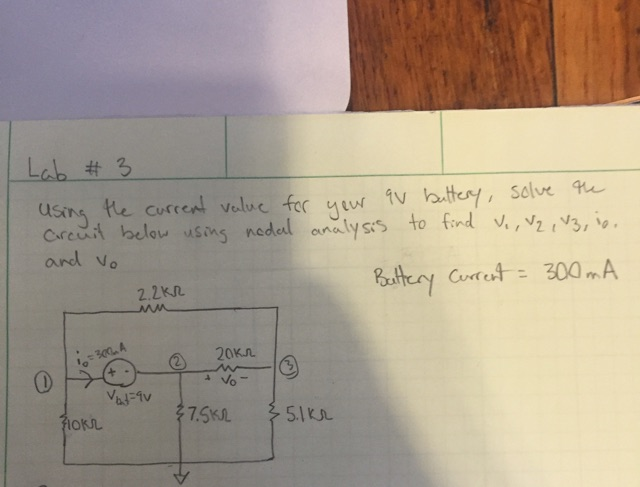 Lab # 3
Using the current value for your 9V battery, solve the
circuit below using nodal analysis to find V₁, V₂, V₃, i₀,
and V₀
Battery Current = 300mA
2.2KΩ
i₀=300mA
+ -
Vbat=9V
②
20KΩ
+ V₀ -
③
①
10KΩ
7.5KΩ
5.1KΩ